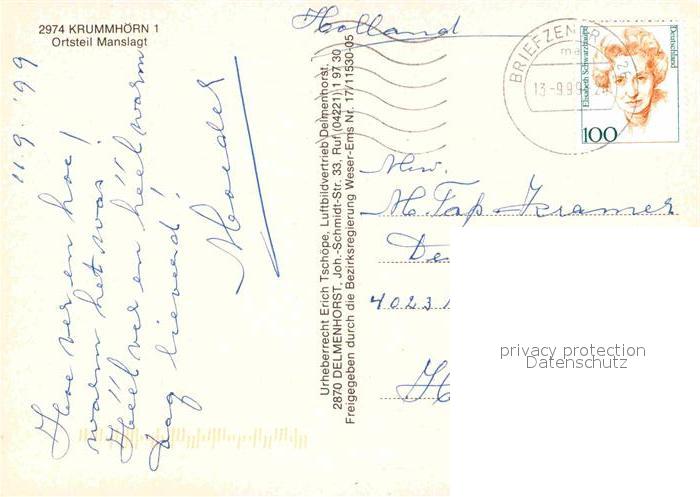 2974 KRUMMHÖRN 1
Ortsteil Manslagt
11.9.'99
Hoe ver en hoe
warm het was!
Héél ver en héél warm
Dag lieverd!
Moeder
Urheberrecht Erich Tschöpe, Luftbildvertrieb Delmenhorst,
2870 DELMENHORST, Joh.-Schmidt-Str. 33, Ruf (04221) 1 97 30
Freigegeben durch die Bezirksregierung Weser-Ems Nr. 17/11530-05
Holland
BRIEFZEN
13.-9.9
Elisabeth Schwarzhaupt
Deutschland
100
Mw.
M. Tap-Kramer
De
4023
H
privacy protection
Datenschutz